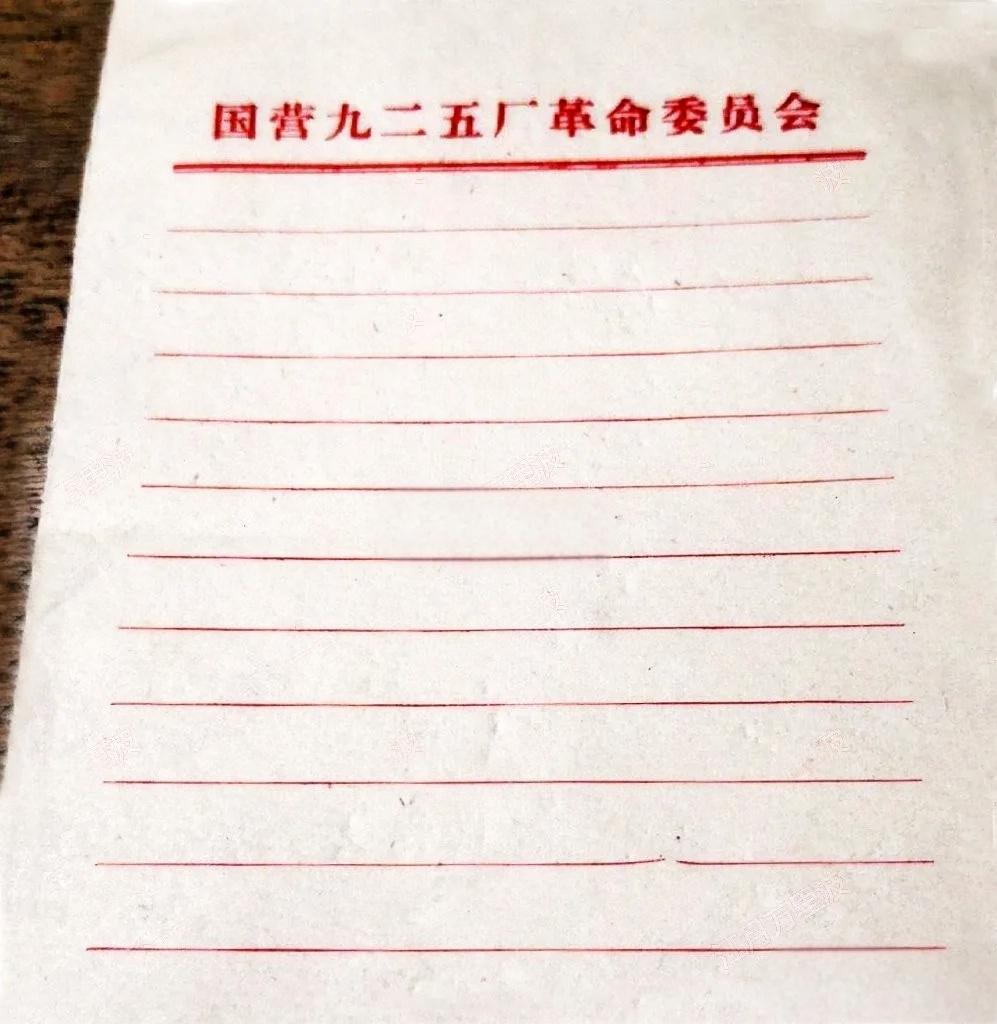 国营九二五厂革命委员会